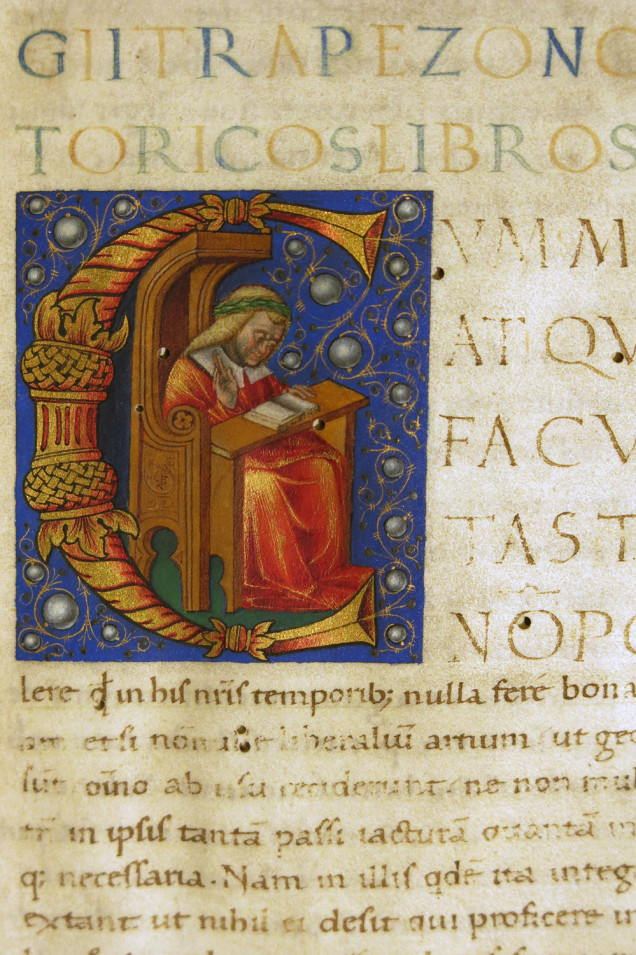 GII TRAPEZON
TORICOS LIBROS
CVM M
AT QV
FACV
TAS T
NŌ PO
lere ꝙ in his nr̄is temporib; nulla fere bona
et si non liberaliū artium ut geo
sūt oīno ab usu reciderunt. ne non mul
in ipsis tantā passi iacturā quantā in
q; necessaria. Nam in illis qdē ita integ
extant ut nihil ei desit qui proficere in